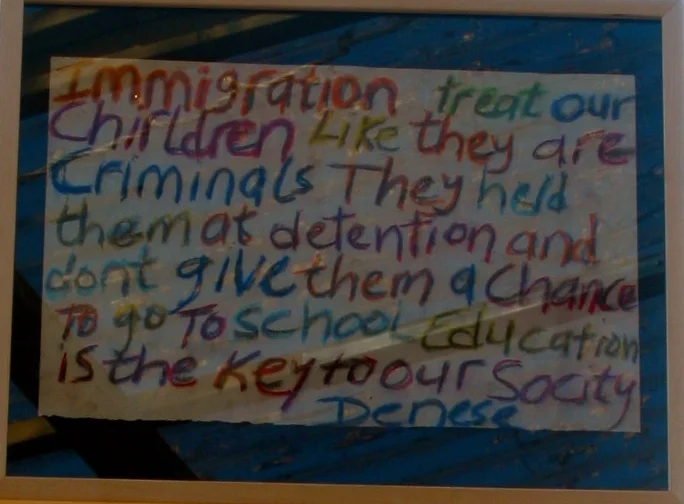 Immigration treat our
Chirldren Like they are
Criminals They held
them at detention and
dont give them a Chance
To go To school Education
is the Key to our Socity
Denese